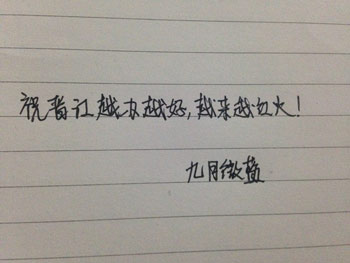 祝晋江越办越好,越来越红火!
九月微蓝